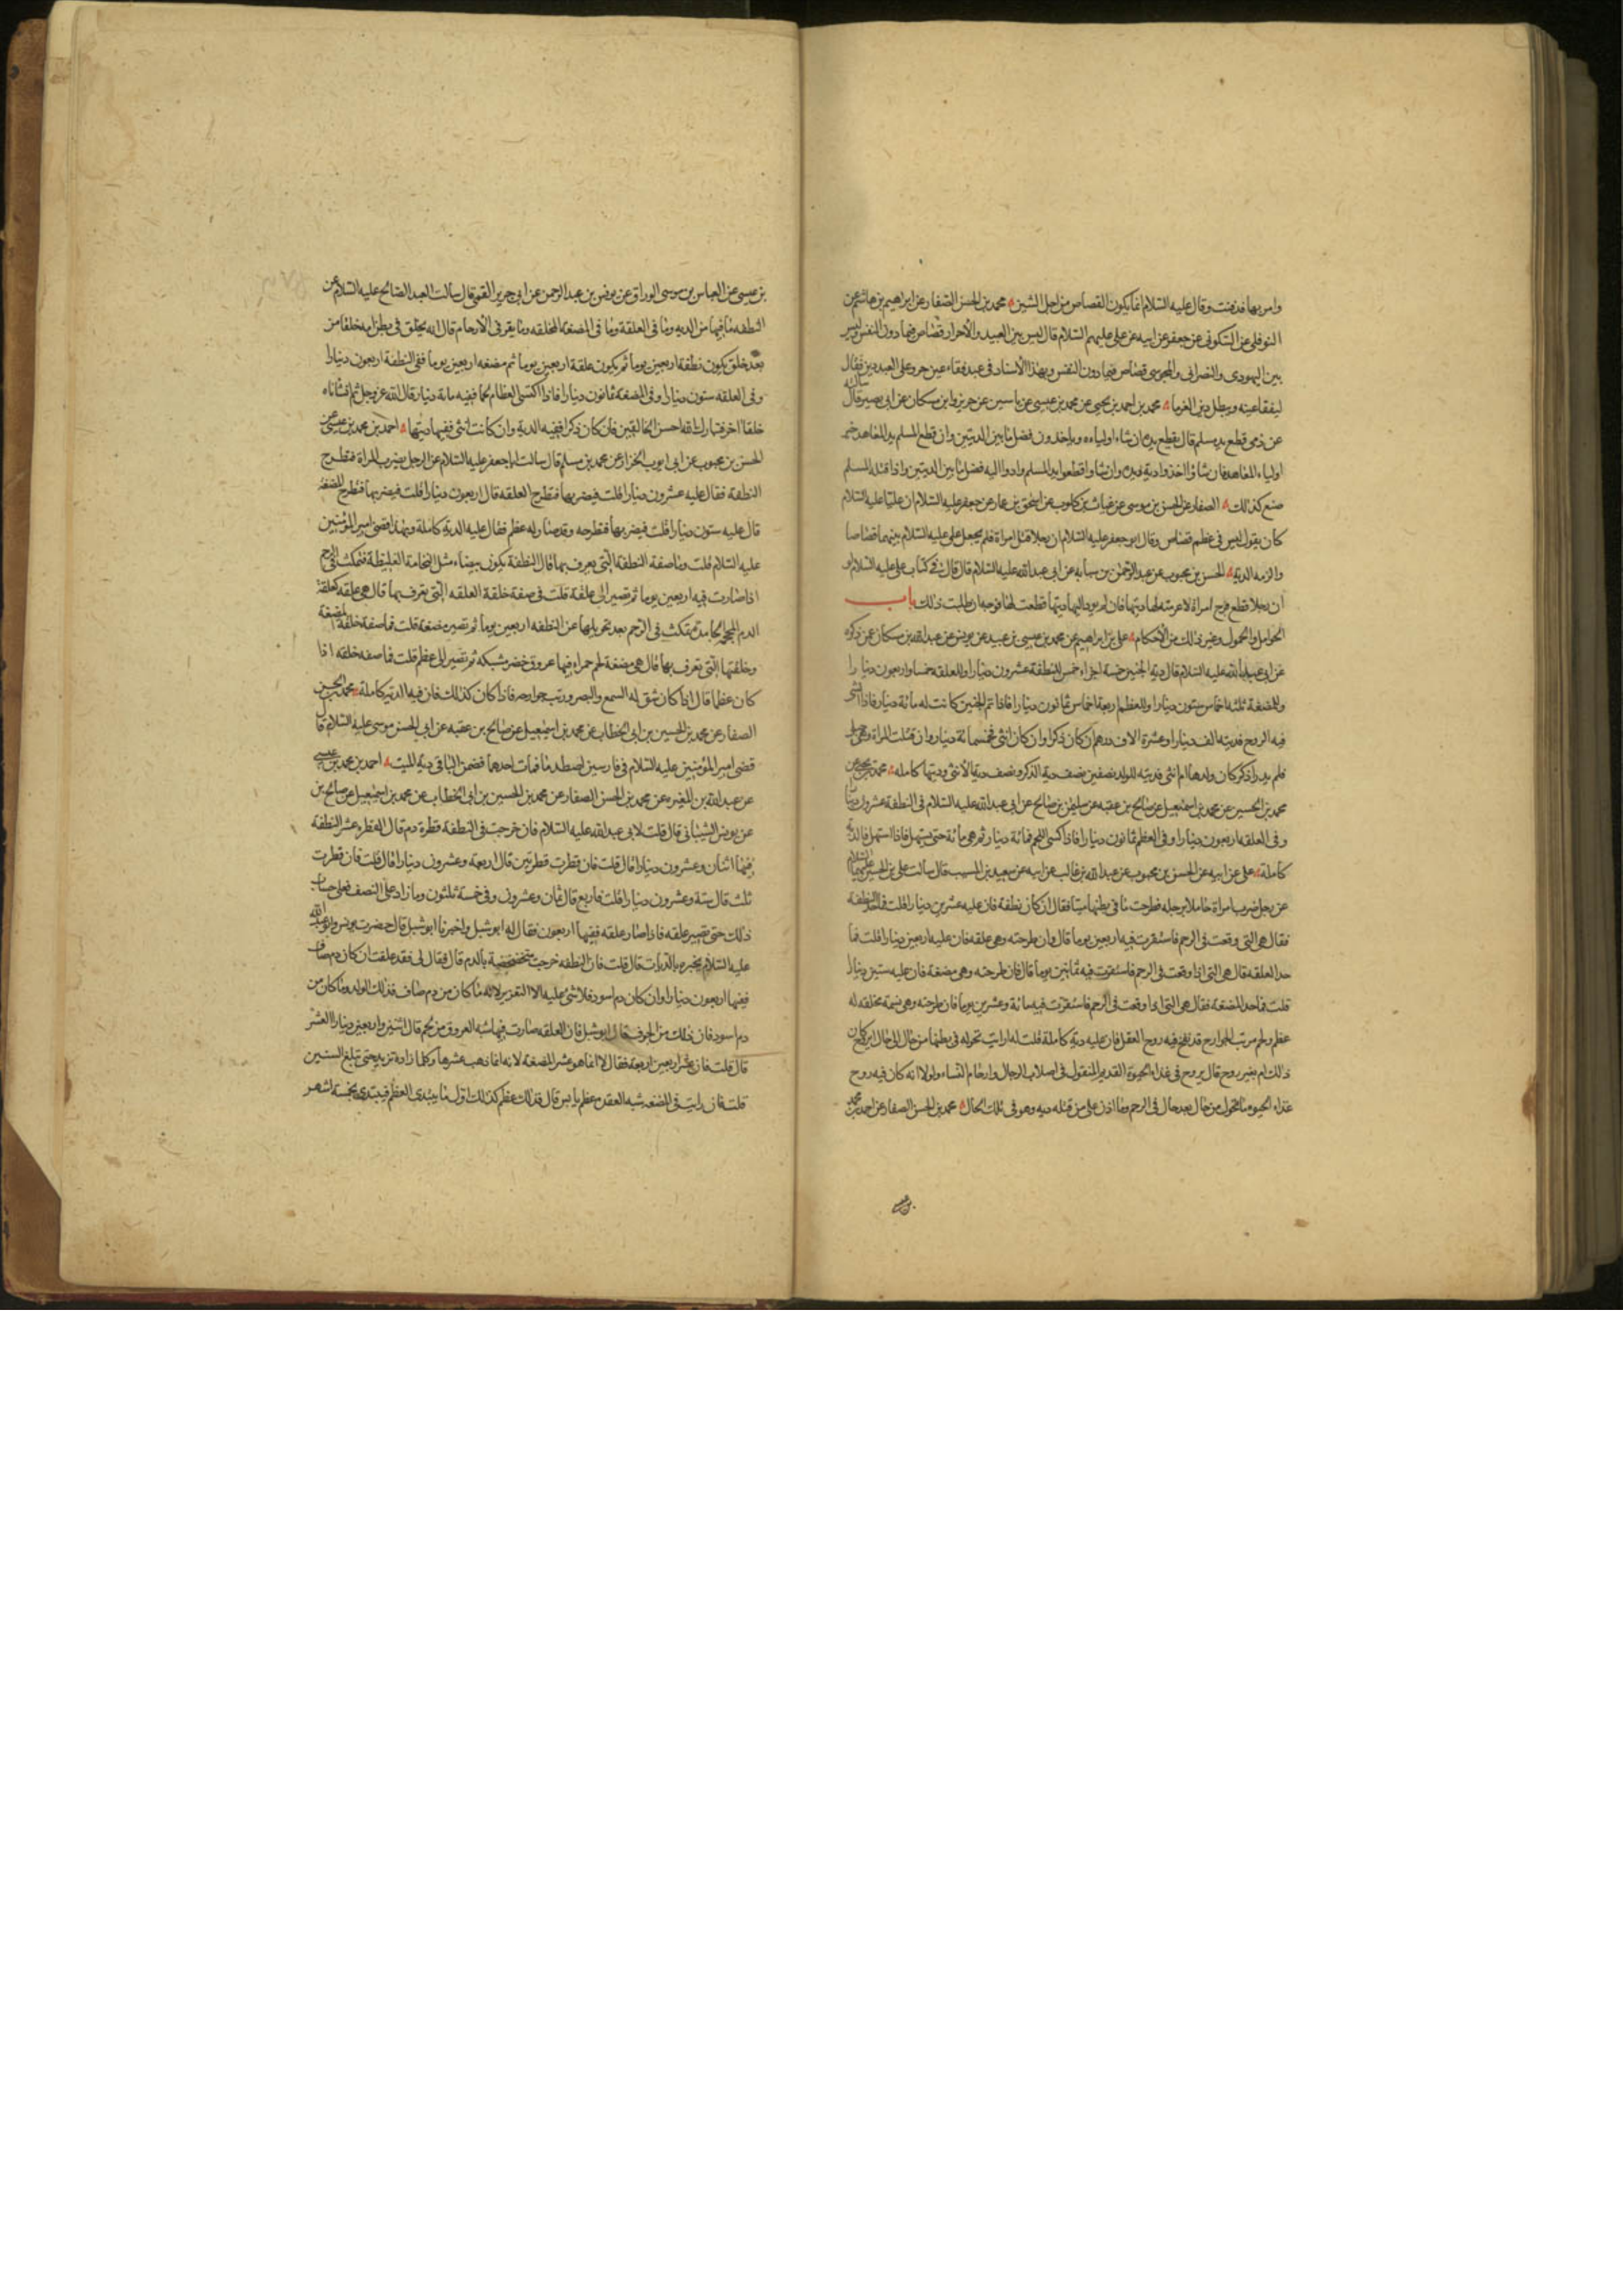 وامر بها فدفنت وقال عليه السلام انما يكون القصاص من اجل الشين محمد بن الحسن الصفار عن ابراهيم بن هاشم عن
النوفلي عن السكوني عن جعفر عن ابيه عن علي عليهم السلام قال ليس بين العبيد والاحرار قصاص فيما دون النفس وليس
بين اليهودي والنصراني والمجوسي قصاص فيما دون النفس وبهذا الاسناد في عبد فقاء عين حر وعلى العبد دين فقال
ليفقا عينه ويبطل دين الغرما محمد بن احمد بن يحيى عن محمد بن عيسى عن ياسين عن حريز وابن مسكان عن ابي بصير قال سالته
عن ذمي قطع يد مسلم قال يقطع يده ان شاء اولياءه وياخذون فضل ما بين الديتين وان قطع المسلم يد المعاهد خير
اولياء المعاهد فان شاؤا اخذوا دية يده وان شاؤا قطعوا يد المسلم وادوا اليه فضل ما بين الديتين واذا قتله المسلم
صنع كذلك الصفار عن الحسن بن موسى عن غياث بن كلوب عن اسحق بن عمار عن جعفر عليه السلام ان عليا عليه السلام
كان يقول ليس في عظم قصاص وقال ابو جعفر عليه السلام ان رجلا قتل امراة فلم يجعل علي عليه السلام بينهما قصاصا
والزمه الدية الحسن بن محبوب عن عبد الرحمن بن سيابه عن ابي عبد الله عليه السلام قال قال في كتاب علي عليه السلام لو
ان رجلا قطع فرج امراة لاغرمنه لها ديتها فان لم يود اليها ديتها قطعت لها فرجه ان طلبت ذلك باب
الحوامل والحمول وغير ذلك من الاحكام علي بن ابراهيم عن محمد بن عيسى بن عبيد عن يونس عن عبد الله بن مسكان عمن ذكره
عن ابي عبد الله عليه السلام قال دية الجنين خمسة اجزاء خمس للنطفة عشرون دينارا وللعلقه خمسا واربعون دينارا
وللمضغة ثلثه اخماس ستون دينارا وللعظم اربعة اخماس ثمانون دينارا فاذا تم الجنين كانت له مائة دينار فاذا انشي
فيه الروح فديته الف دينار او عشرة الاف درهم ان كان ذكرا وان كان انثى فخمسمائة دينار وان قتلت المراة وهي حبلى
فلم يدر اذكر كان ولدها ام انثى فدية الولد نصفين نصف دية الذكر ونصف دية الانثى وديتها كامله محمد بن يحيى عن
محمد بن الحسين عن محمد بن اسمعيل عن صالح بن عقبه عن سليمن بن صالح عن ابي عبد الله عليه السلام في النطفة عشرون دينارا
وفي العلقه اربعون دينارا وفي العظم ثمانون دينارا فاذا كسي اللحم فمائة دينار ثم هي مائة حتى يستهل فاذا استهل فالدية
كاملة علي عن ابيه عن الحسن بن محبوب عن عبد الله بن غالب عن ابيه عن سعيد بن المسيب قال سالت علي بن الحسين عليهما السلام
عن رجل ضرب امراة حاملا برجله فطرحت ما في بطنها ميتا فقال ان كان نطفة فان عليه عشرين دينارا قلت فما حد النطفة
فقال هي التي وقعت في الرحم فاستقرت فيه اربعين يوما قال وان طرحته وهي علقه فان عليه اربعين دينارا قلت فما
حد العلقه قال هي التي اذا وقعت في الرحم فاستقرت فيه ثمانين يوما قال فان طرحته وهي مضغة فان عليه ستين دينارا
قلت فما حد المضغة فقال هي التي اذا وقعت في الرحم فاستقرت فيه مائة وعشرين يوما فان طرحته وهي نسمة مخلقه له
عظم ولحم مرتب الجوارح قد نفخ فيه روح العقل فان عليه دية كاملة قلت له ارايت تحوله في بطنها من حال الى حال ابروح كان
ذلك ام بغير روح قال بروح في غذاء الحيوة القديم المنقول في اصلاب الرجال وارحام النساء ولولا انه كان فيه روح
غذاء الحيوه ما تحول من حال بعد حال في الرحم وما اذن على من قتله ديه وهو في تلك الحال محمد بن الحسن الصفار عن احمد بن محمد
بن عيسى عن العباس بن موسى الوراق عن يونس بن عبد الرحمن عن ابي جرير القمي قال سالت العبد الصالح عليه السلام عن
النطفه ما فيها من الديه وما في العلقة وما في المضغة المخلقه وما يقر في الارحام قال انه يخلق في بطن امه خلقا من
بعد خلق يكون نطفة اربعين يوما ثم يكون علقة اربعين يوما ثم مضغه اربعين يوما ففي النطفة اربعون دينارا
وفي العلقه ستون دينارا وفي المضغة ثمانون دينارا فاذا اكتسى العظام لحما ففيه مائة دينار قال الله عز وجل ثم انشاناه
خلقا اخر فتبارك الله احسن الخالقين فان كان ذكرا ففيه الدية وان كانت انثى ففيها ديتها احمد بن محمد بن عيسى عن
الحسن بن محبوب عن ابي ايوب الخزاز عن محمد بن مسلم قال سالت ابا جعفر عليه السلام عن الرجل يضرب المراة فتطرح
النطفة فقال عليه عشرون دينارا قلت فيضربها فتطرح العلقه قال اربعون دينارا قلت فيضربها فتطرح المضغة
قال عليه ستون دينارا قلت فيضربها فتطرحه وقد صار له عظم فقال عليه الدية كاملة وبهذا قضى امير المؤمنين
عليه السلام قلت وما صفة النطفة التي يعرف بها قال النطفة يكون بيضاء مثل النخامة الغليظة فتمكث في الرحم
اذا صارت فيه اربعين يوما ثم تصير الى علقة قلت في صفة خلقة العلقه التي يعرف بها قال هي علقه كعلقة
الدم المحجمة الجامدة تمكث في الرحم بعد تحويلها عن النطفه اربعين يوما ثم تصير مضغة قلت فما صفة خلقة المضغة
وخلقتها التي تعرف بها قال هي مضغة لحم حمراء فيها عروق خضر مشبكه ثم تصير الى عظم قلت فما صفه خلقه اذا
كان عظما قال اذا كان شق له السمع والبصر ورتب جوارحه فاذا كان كذلك فان فيه الديه كاملة محمد بن الحسن
الصفار عن محمد بن الحسين بن ابي الخطاب عن محمد بن اسمعيل عن صالح بن عقبه عن ابي الحسن موسى عليه السلام قال
قضى امير المؤمنين عليه السلام في فارسين اصطدما فمات احدهما فضمن الباقي دية الميت احمد بن محمد بن عيسى
عن عبد الله بن المغيره عن محمد بن الحسن الصفار عن محمد بن الحسين بن ابي الخطاب عن محمد بن اسمعيل عن صالح بن
عن يونس الشيباني قال قلت لابي عبد الله عليه السلام فان خرجت في النطفة قطرة دم قال القطره عشر النطفة
فيها اثنان وعشرون دينارا قال قلت فان قطرت قطرتين قال اربعة وعشرون دينارا قال قلت فان قطرت
ثلث قال ستة وعشرون دينارا قلت فاربع قال ثمان وعشرون وفي خمسة ثلثون وما زاد على النصف فعلى حساب
ذلك حتى تصير علقه فاذا صار علقه ففيها اربعون فقال له ابو شبل واخبرنا ابو شبل قال حضرت يونس وابو عبد الله
عليه السلام يخبره بالديات قال قلت فان النطفه خرجت متخضخضة بالدم قال فقال لي فقد علقت ان كان دم صاف
ففيها اربعون دينارا وان كان دم اسود فلا شئ عليه الا التعزير لانه ما كان من دم صاف فذلك الولد وما كان من
دم اسود فان ذلك من الجوف قال ابو شبل فان العلقه صارت فيها شبه العروق من لحم قال اثنين واربعين دينارا العشر
قال قلت فان عشر اربعين اربعة فقال لا انما هو عشر المضغة لانه انما ذهب عشرها وكلما زادت تزيد حتى تبلغ الستين
قلت فان رايت في المضغه شبه العقده عظم يابس قال فذلك عظم كذلك اول ما يبتدى العظم فيبتدى بخمسة اشهر